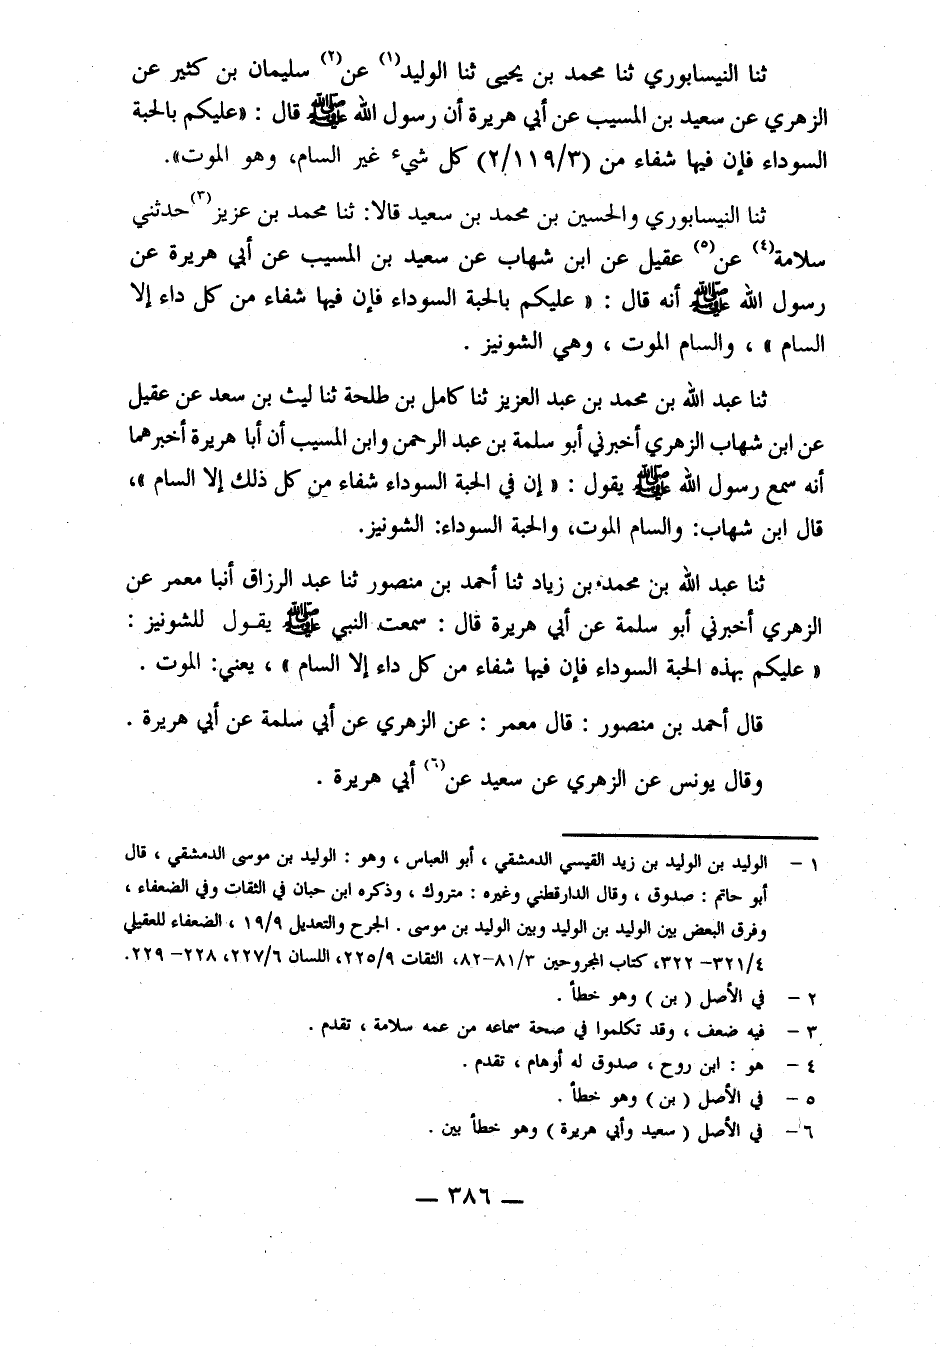 ثنا النيسابوري ثنا محمد بن يحيى ثنا الوليد(١) عن(٢) سليمان بن كثير عن
الزهري عن سعيد بن المسيب عن أبي هريرة أن رسول الله ﷺ قال : «عليكم بالحبة
السوداء فإن فيها شفاء من (٢/١١٩/٣) كل شيء غير السام، وهو الموت».
ثنا النيسابوري والحسين بن محمد بن سعيد قالا: ثنا محمد بن عزيز(٣) حدثني
سلامة(٤) عن(٥) عقيل عن ابن شهاب عن سعيد بن المسيب عن أبي هريرة عن
رسول الله ﷺ أنه قال : « عليكم بالحبة السوداء فإن فيها شفاء من كل داء إلا
السام » ، والسام الموت ، وهي الشونيز .
ثنا عبد الله بن محمد بن عبد العزيز ثنا كامل بن طلحة ثنا ليث بن سعد عن عقيل
عن ابن شهاب الزهري أخبرني أبو سلمة بن عبد الرحمن وابن المسيب أن أبا هريرة أخبرهما
أنه سمع رسول الله ﷺ يقول : « إن في الحبة السوداء شفاء من كل ذلك إلا السام »،
قال ابن شهاب: والسام الموت، والحبة السوداء: الشونيز.
ثنا عبد الله بن محمد بن زياد ثنا أحمد بن منصور ثنا عبد الرزاق أنبا معمر عن
الزهري أخبرني أبو سلمة عن أبي هريرة قال : سمعت النبي ﷺ يقول للشونيز :
« عليكم بهذه الحبة السوداء فإن فيها شفاء من كل داء إلا السام » ، يعني: الموت .
قال أحمد بن منصور : قال معمر : عن الزهري عن أبي سلمة عن أبي هريرة .
وقال يونس عن الزهري عن سعيد عن(٦) أبي هريرة .
١ – الوليد بن الوليد بن زيد القيسي الدمشقي ، أبو العباس ، وهو : الوليد بن موسى الدمشقي ، قال
أبو حاتم : صدوق ، وقال الدارقطني وغيره : متروك ، وذكره ابن حبان في الثقات وفي الضعفاء ،
وفرق البعض بين الوليد بن الوليد وبين الوليد بن موسى . الجرح والتعديل ١٩/٩ ، الضعفاء للعقيلي
٣٢١/٤– ٣٢٢، كتاب المجروحين ٨١/٣–٨٢، الثقات ٢٢٥/٩، اللسان ٢٢٧/٦، ٢٢٨– ٢٢٩.
٢ – في الأصل ( بن ) وهو خطأ .
٣ – فيه ضعف ، وقد تكلموا في صحة سماعه من عمه سلامة ، تقدم .
٤ – هو : ابن روح ، صدوق له أوهام ، تقدم .
٥ – في الأصل ( بن ) وهو خطأ .
٦ – في الأصل ( سعيد وأبي هريرة ) وهو خطأ بين .
— ٣٨٦ —